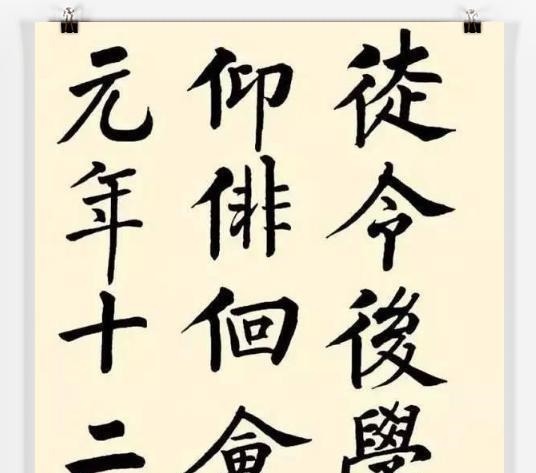 徒令後學
仰俳佪會
元年十二